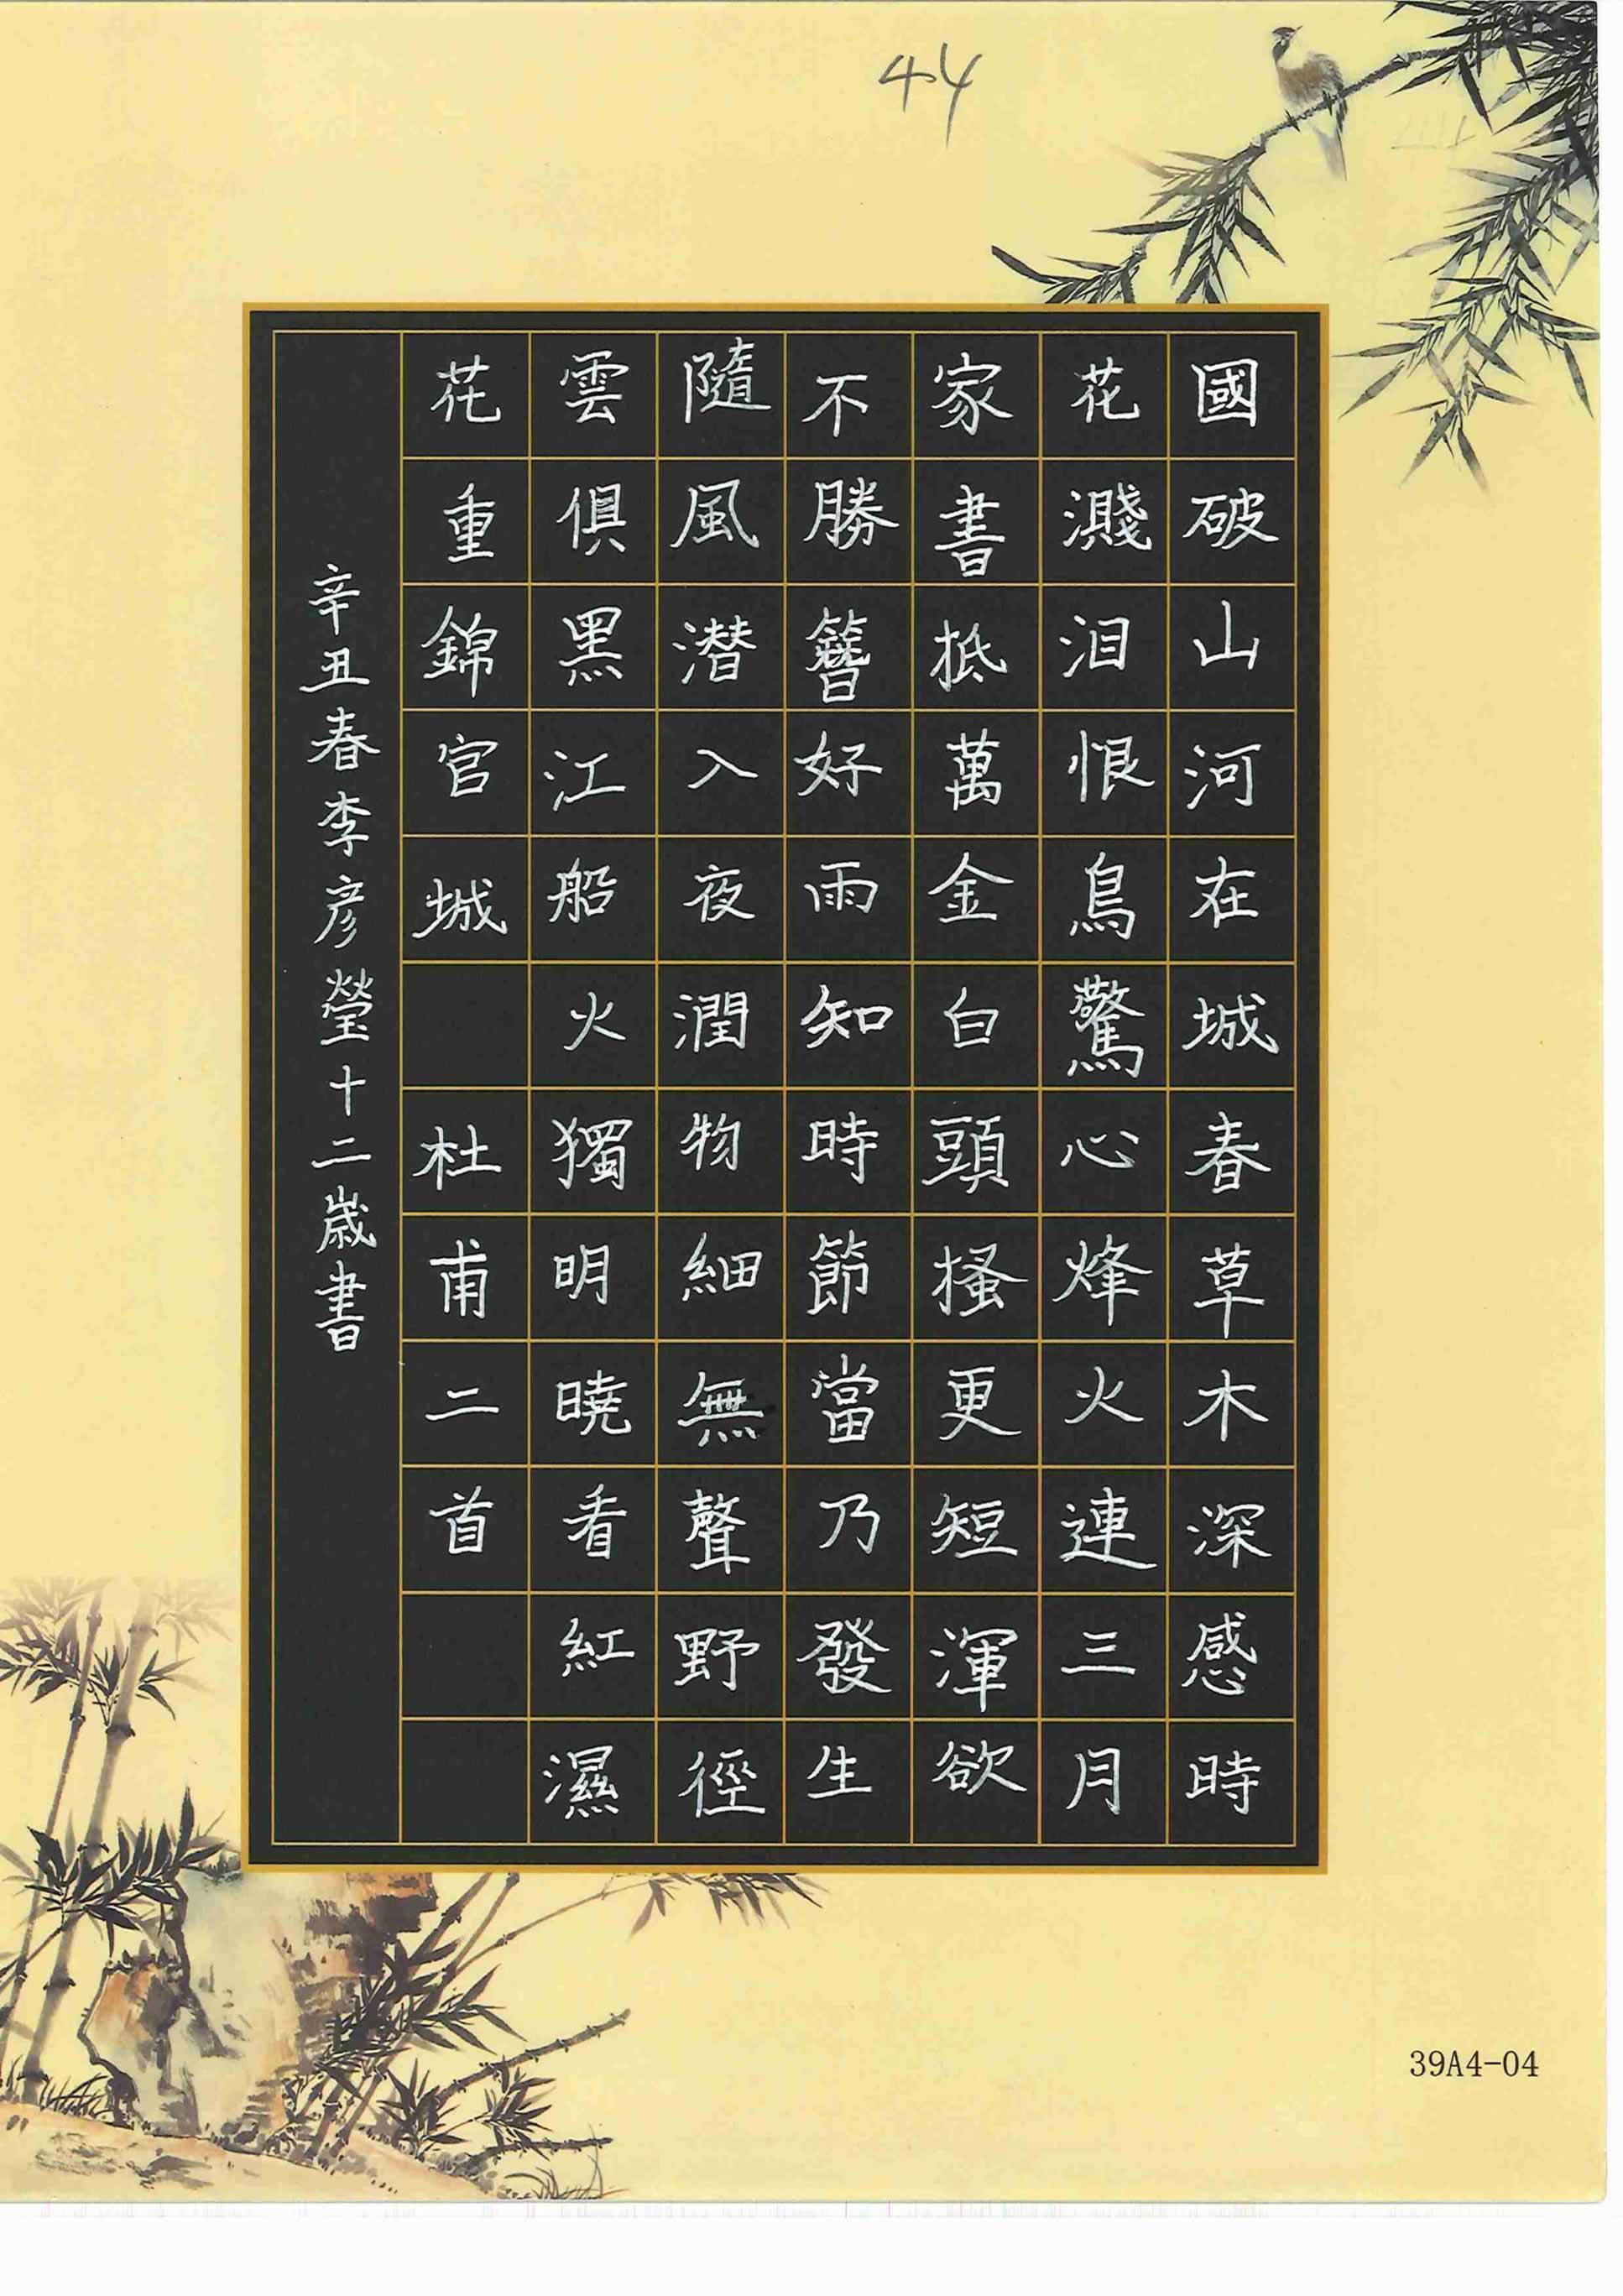 44
國破山河在城春草木深感時
花濺泪恨鳥驚心烽火連三月
家書抵萬金白頭搔更短渾欲
不勝簪好雨知時節當乃發生
隨風潛入夜潤物細無聲野徑
雲俱黑江船火獨明曉看紅濕
花重錦官城 杜甫二首
辛丑春李彦瑩十二歲書
39A4-04